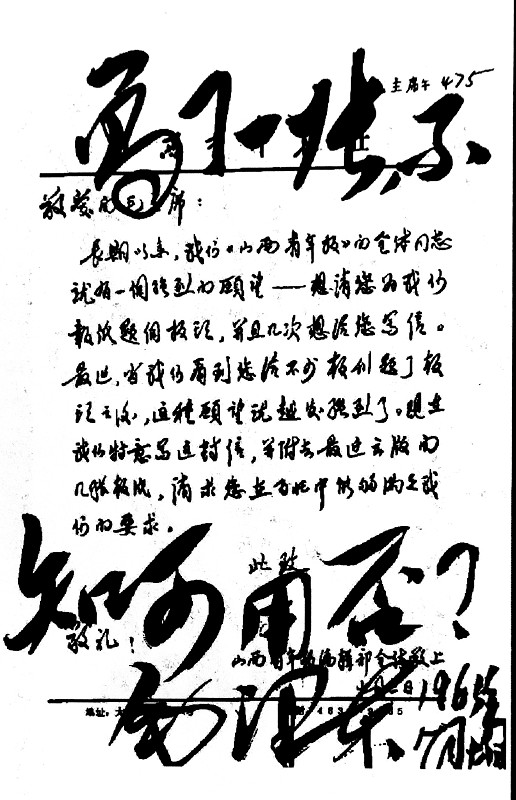 写了一张,不
主席午 475
敬爱的毛主席:
长期以来,我们《山西青年报》的全体同志
就有一个强烈的愿望——想请您为我们
报纸题个报头,并且几次想给您写信。
最近,当我们看到您给不少报刊题了报
头之后,这种愿望就越发强烈了。现在
我们特意写这封信,并附去最近出版的
几张报纸,请求您在百忙中能够满足我
们的要求。
此致
敬礼!
知可用否?
山西青年报编辑部全体敬上
毛泽东
196
7月
地址:太
483